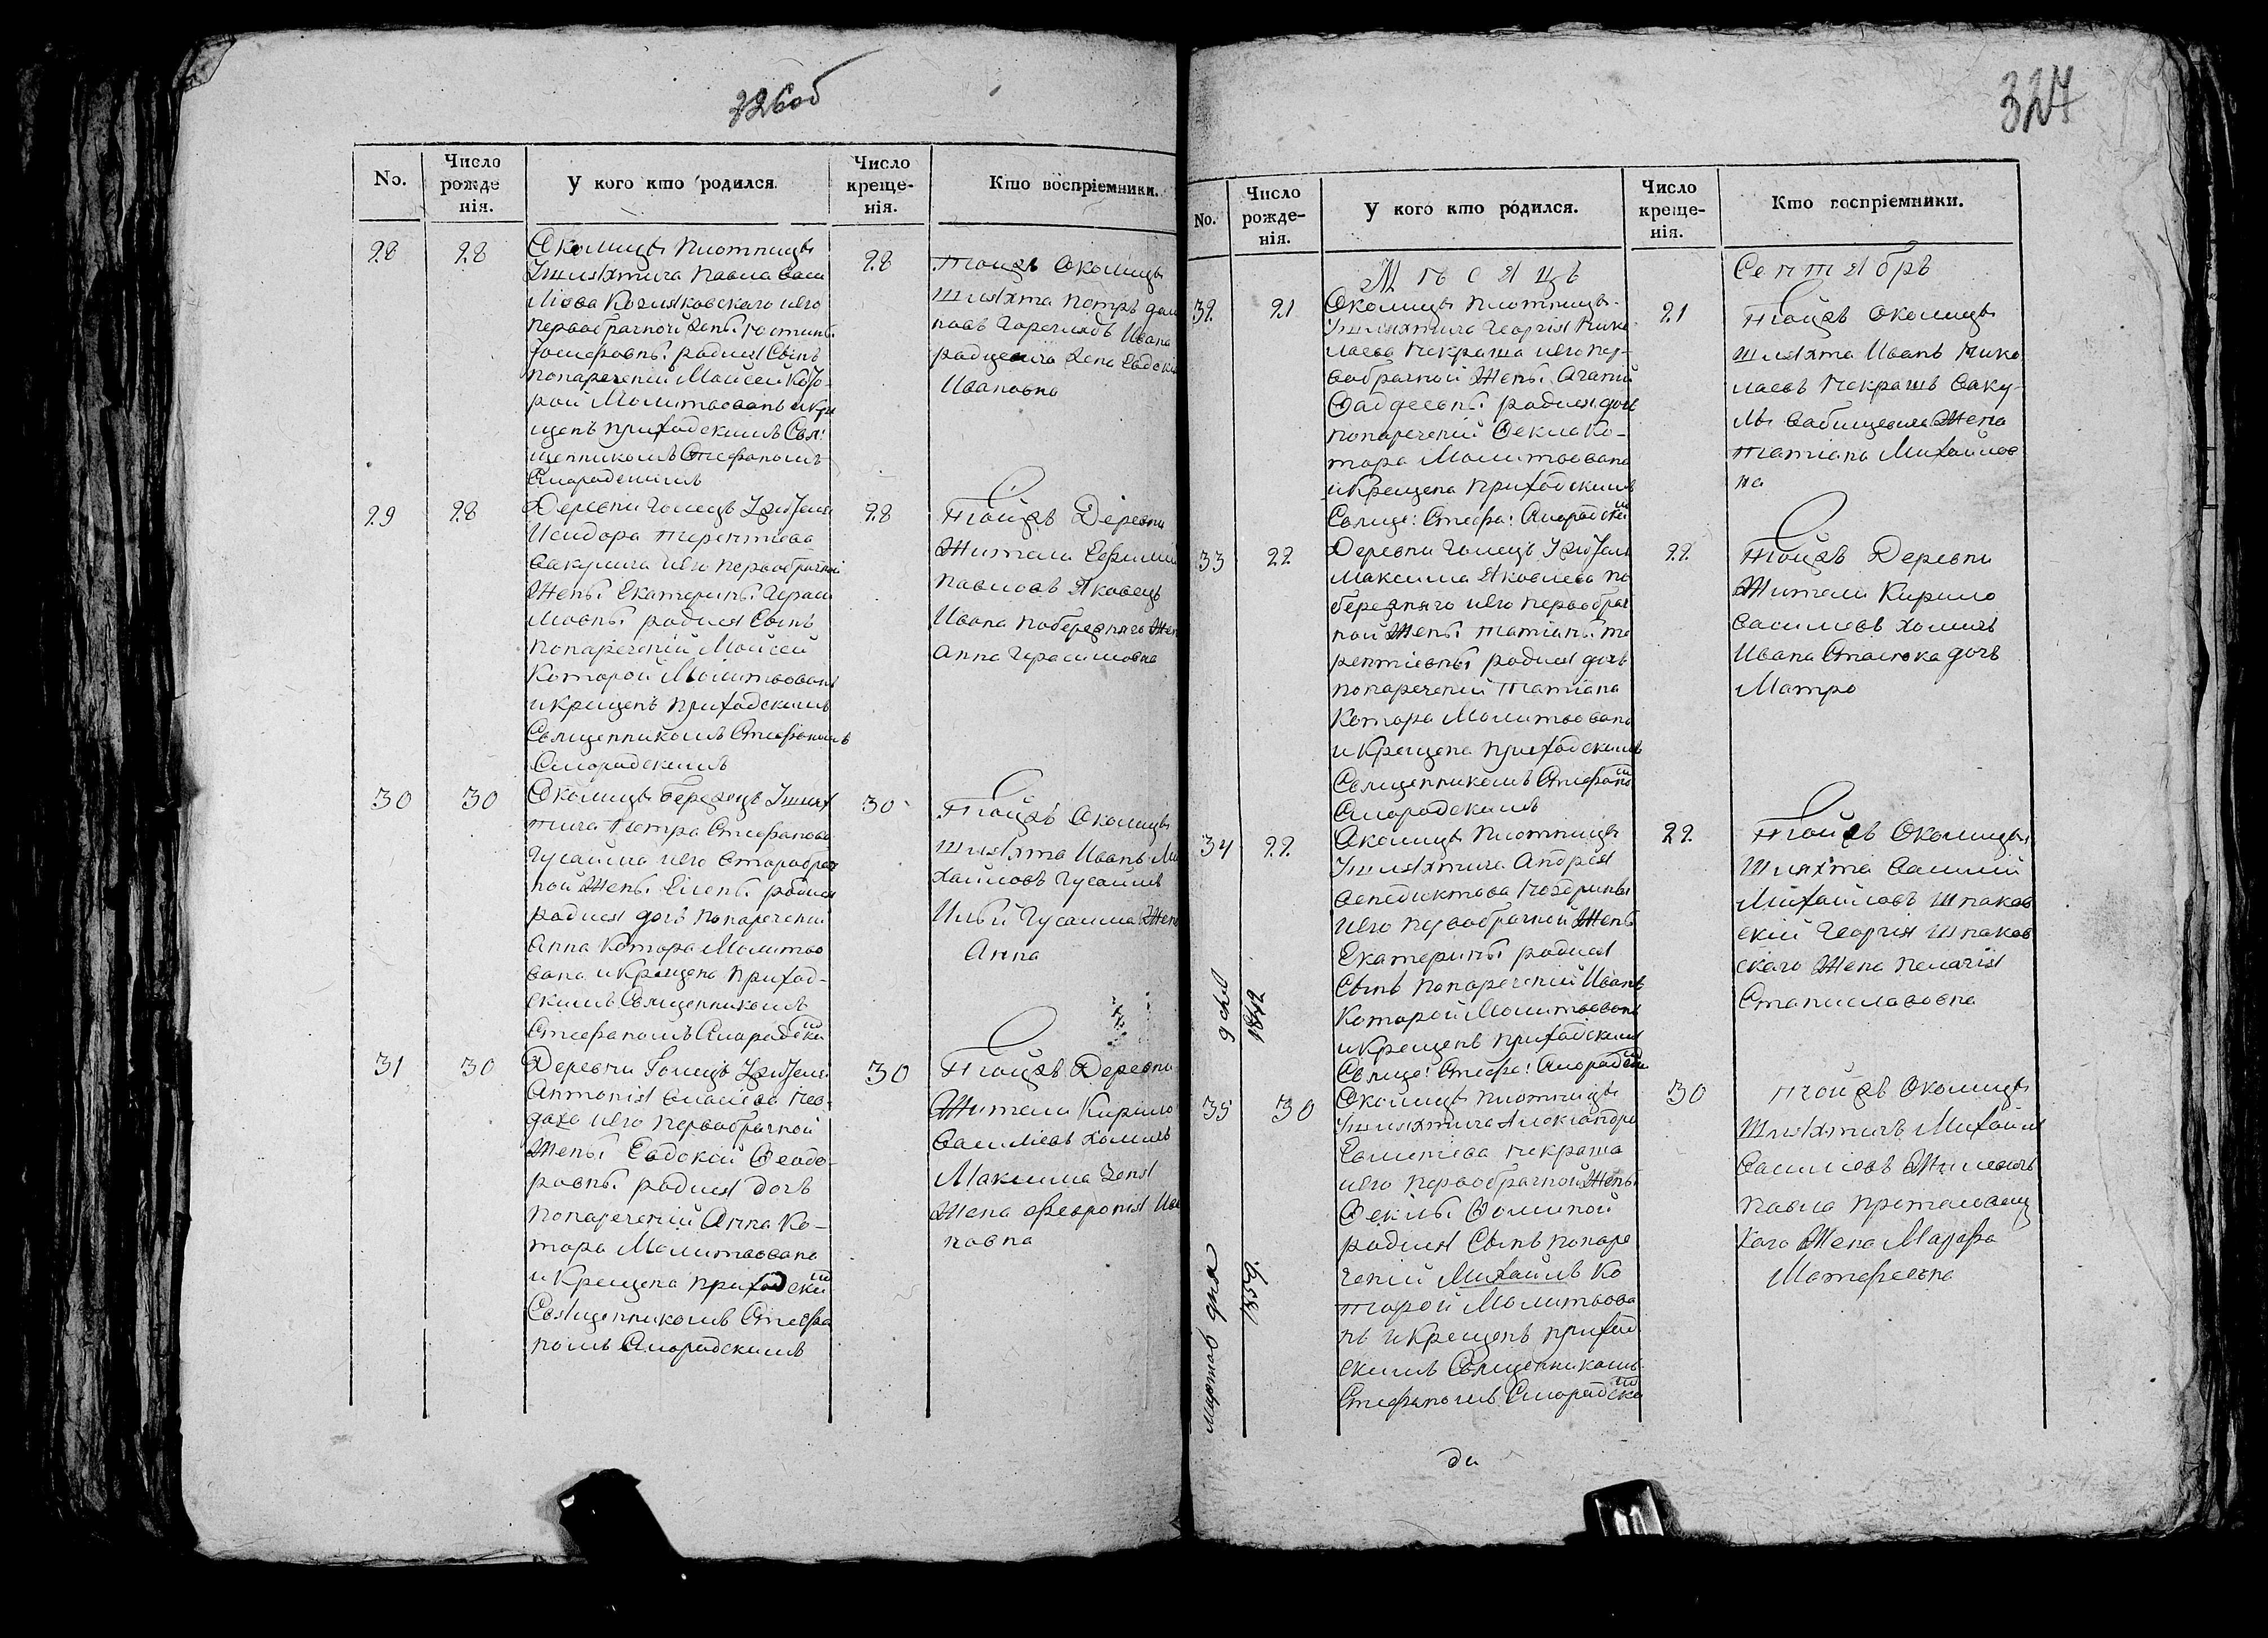 326об
No.
Число рожде нія.
У кого кто родился.
Число креще- нія.
Кто воспріемники.
28
28
Околицы Плотницы
Ушляхтича Павла Васи
лѣова его
первобрачной жены
родился Сынъ
понареченій Мойсей Кото-
рой Молитвованъ и кре
щенъ приходскимъ Свя:
щенникомъ Стефаномъ
Смородскимъ
28
Тоижъ Околицы
Шляхта Петръ
Ивана
жена Евдокія
Ивановна
29
28
Деревни Голецъ Ужителя
Исидора Терентіева
Вакулича иего первобрачной
Жены Екатерины Гераси
мовны родился Сынъ
понареченій Мойсей
Которой Молитвованъ
и крещенъ приходскимъ
Священникомъ Стефаномъ
Смородскимъ
28
Тоижъ Деревни
Жители Ефимій
Павловъ Яковецъ
Ивана Побережняго Жена
Анна Герасимовна
30
30
Околицы Бережецъ Ушлях
тича Петра Стефанова
Гусаима иего Старобрач
ной Жены Елены родися
родился дочь понареченій
Анна Котора Молитво
вана и Крещена приход-
скимъ Священникомъ
Стефаномъ Смородским
30
Тоижъ Околицы
Шляхта Иванъ Ми
хайловъ Гусаимъ
Ильи Гусаима Жена
Анна
31
30
Деревни Голецъ Ужителя
Антонія
иего первобрачной
Жены Евдокіи Феодо-
ровны родился Дочь
понареченій Анна Ко-
тора Молитвована
и Крещена приходским
Священникомъ Стефа
номъ Смородскимъ
30
Тоижъ Деревни
Жители Кирило
Василіевъ Хомичъ
Максима
Жена Февронія Ива
новна
327
No.
Число рожде- нія.
У кого кто родился.
Число креще- нія.
Кто воспріемники.
Мѣсяцъ
Сентябрь
32
21
Околицы Плотницы
Ушляхтича Георгія Нико
лаева Некраша иего пер-
вобрачной Жены Агапіи
Фаддеевны родился дочь
понареченій Фекла Ко-
тора Молитвована
и Крещена Приходскимъ
Свяще: Стефа: Смородским
21
Тоижъ Околицы
Шляхта Иванъ Нико
лаевъ Некрашъ Ваку-
лы Бабищевича Жена
Татіана Михайлов
на
33
22
Деревни Голецъ Ужителя
Максима Яковлева По
бережняго иего первобрач
ной Жены Татіаны Те
рентіевны родился дочь
понареченій Татіана
Котора Молитвована
и Крещена приходскимъ
Священникомъ Стефаном
Смородскимъ
22
Тоижъ Деревни
Жители Кирило
Василіевъ Хомичъ
Ивана дочь
Матро
34
22
Околицы Плотницы
Ушляхтича Андрея
Венедиктова Ноздрины
иего первобрачной Жены
Екатерины родился
Сынъ понареченій Иванъ
Которой Молитвованъ
и Крещенъ приходским
Свяще: Стефа: Смородским
22
Тоижъ Околицы
Шляхта Василій
Михайловъ Шпаков
скій Георгія Шпаков
скаго Жена Пелагія
Станиславовна
1842
35
30
Околицы Плотницы
Ушляхтича Александра
Некраша
иего первобрачной Жены
Феклы Фоминой
родился Сынъ понаре
ченій Михаилъ Ко
торой Молитвова
нъ и Крещенъ приход
скимъ Священникомъ
Стефаномъ Смородским
30
Тоижъ Околицы
Шляхтичъ Михаилъ
Василіевъ
Павла Протасовиц
каго Жена Марфа
Матфеевна
мартов дня
1859
ди